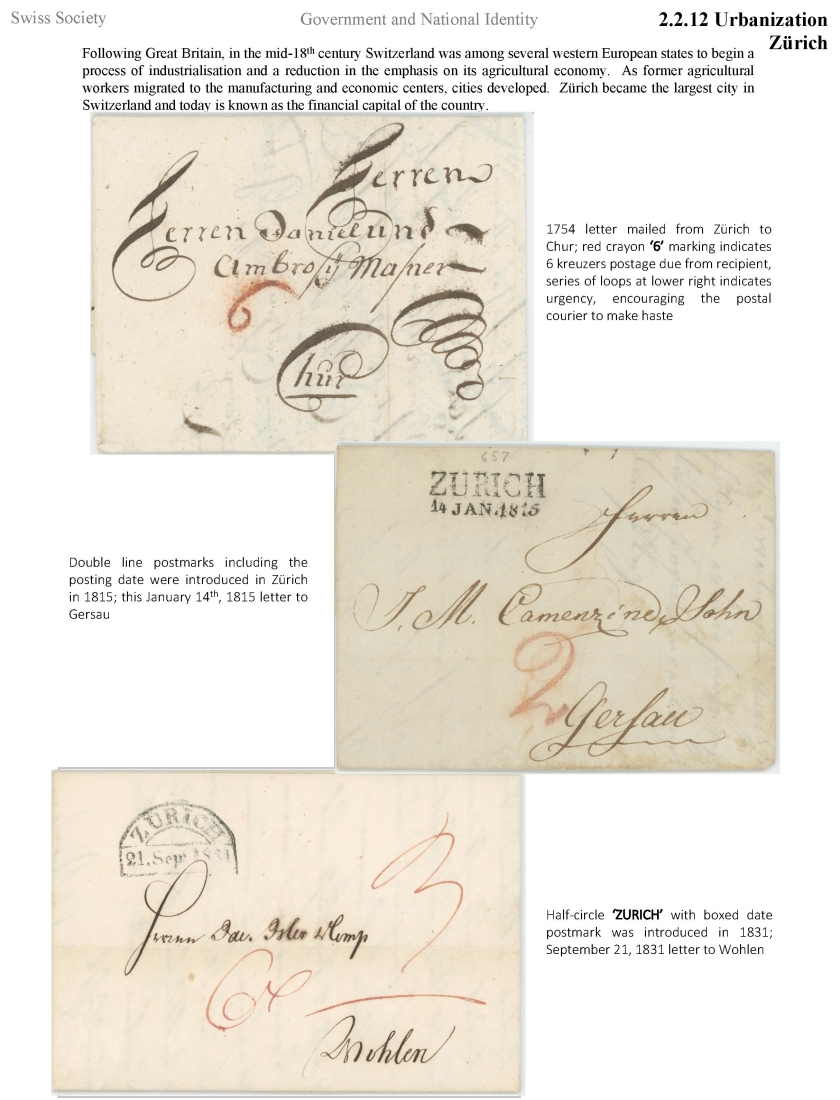 Swiss Society
Government and National Identity
2.2.12 Urbanization
Zürich
Following Great Britain, in the mid-18th century Switzerland was among several western European states to begin a
process of industrialisation and a reduction in the emphasis on its agricultural economy. As former agricultural
workers migrated to the manufacturing and economic centers, cities developed. Zürich became the largest city in
Switzerland and today is known as the financial capital of the country.
Herren
Herren Daniel und
Ambrosÿ Masner
6
Chur
1754 letter mailed from Zürich to
Chur; red crayon '6' marking indicates
6 kreuzers postage due from recipient,
series of loops at lower right indicates
urgency, encouraging the postal
courier to make haste
657
ZURICH
14 JAN.1815
Herren
J. M. Camenzind, Sohn
2
Gersau
Double line postmarks including the
posting date were introduced in Zürich
in 1815; this January 14th, 1815 letter to
Gersau
ZURICH
21.Sept 1831
3
Herren Dav. Isler
Wohlen
Half-circle 'ZURICH' with boxed date
postmark was introduced in 1831;
September 21, 1831 letter to Wohlen